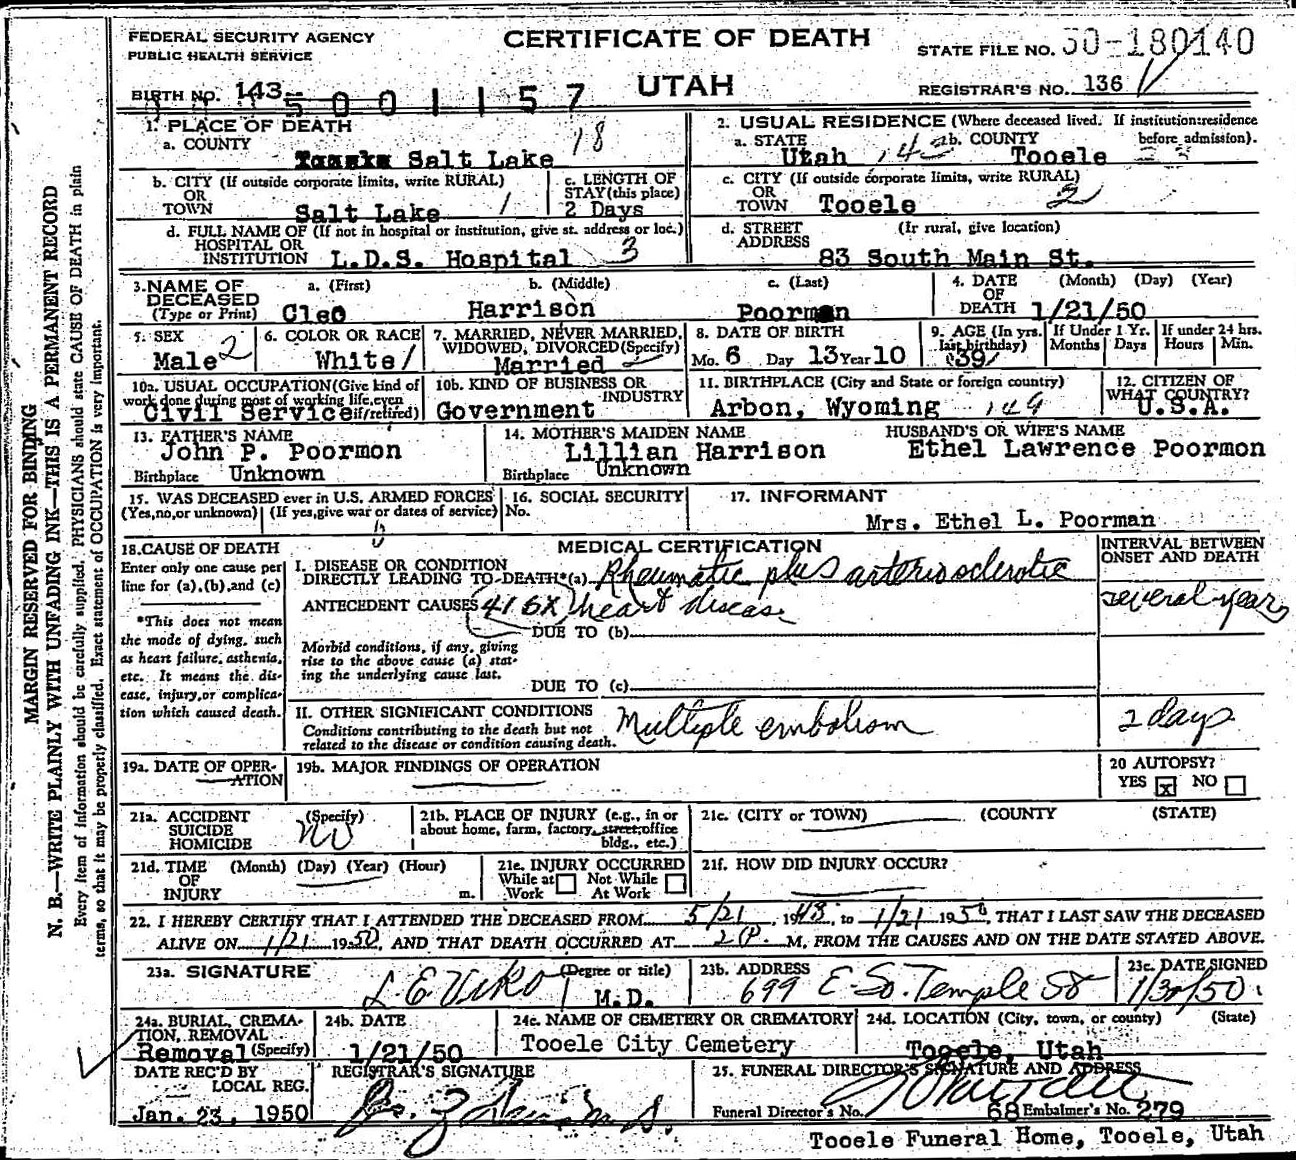 FEDERAL SECURITY AGENCY
PUBLIC HEALTH SERVICE
CERTIFICATE OF DEATH
UTAH
STATE FILE NO. 50-180140
REGISTRAR'S NO. 136
BIRTH NO. 143
5001157
1. PLACE OF DEATH
a. COUNTY Salt Lake 18
2. USUAL RESIDENCE (Where deceased lived. If institution:residence before admission).
a. STATE Utah b. COUNTY Tooele
b. CITY (If outside corporate limits, write RURAL)
OR
TOWN Salt Lake 1
c. LENGTH OF
STAY (this place)
2 Days
c. CITY (If outside corporate limits, write RURAL)
OR
TOWN Tooele 2
d. FULL NAME OF (If not in hospital or institution, give st. address or loc.)
HOSPITAL OR
INSTITUTION L.D.S. Hospital 3
d. STREET (If rural, give location)
ADDRESS 83 South Main St.
3. NAME OF DECEASED
(Type or Print)
a. (First) Cleo
b. (Middle) Harrison
c. (Last) Poorman
4. DATE OF DEATH (Month) (Day) (Year)
1/21/50
5. SEX
Male 2
6. COLOR OR RACE
White 1
7. MARRIED, NEVER MARRIED,
WIDOWED, DIVORCED (Specify)
Married
8. DATE OF BIRTH
Mo. 6 Day 13 Year 10
9. AGE (In yrs. last birthday)
39
If Under 1 Yr.
Months Days
If under 24 hrs.
Hours Min.
10a. USUAL OCCUPATION (Give kind of
work done during most of working life, even
if retired)
Civil Service
10b. KIND OF BUSINESS OR INDUSTRY
Government
11. BIRTHPLACE (City and State or foreign country)
Arbon, Wyoming 149
12. CITIZEN OF WHAT COUNTRY?
U.S.A.
13. FATHER'S NAME
John P. Poormon
Birthplace Unknown
14. MOTHER'S MAIDEN NAME
Lillian Harrison
Birthplace Unknown
HUSBAND'S OR WIFE'S NAME
Ethel Lawrence Poormon
15. WAS DECEASED ever in U.S. ARMED FORCES
(Yes,no,or unknown) (If yes,give war or dates of service)
16. SOCIAL SECURITY
No.
17. INFORMANT
Mrs. Ethel L. Poorman
18. CAUSE OF DEATH
Enter only one cause per
line for (a),(b),and (c)
*This does not mean
the mode of dying, such
as heart failure, asthenia,
etc. It means the dis-
ease, injury,or complica-
tion which caused death.
MEDICAL CERTIFICATION
INTERVAL BETWEEN
ONSET AND DEATH
I. DISEASE OR CONDITION
DIRECTLY LEADING TO DEATH*(a) Rheumatic plus arteriosclerotic
ANTECEDENT CAUSES 416X heart disease
several years
DUE TO (b)
Morbid conditions, if any, giving
rise to the above cause (a) stat-
ing the underlying cause last.
DUE TO (c)
II. OTHER SIGNIFICANT CONDITIONS
Conditions contributing to the death but not
related to the disease or condition causing death.
Multiple embolism
2 days
19a. DATE OF OPERATION
19b. MAJOR FINDINGS OF OPERATION
20 AUTOPSY?
YES x NO
21a. ACCIDENT (Specify)
SUICIDE
HOMICIDE
No
21b. PLACE OF INJURY (e.g., in or
about home, farm, factory, street, office
bldg., etc.)
21c. (CITY or TOWN) (COUNTY) (STATE)
21d. TIME (Month) (Day) (Year) (Hour)
OF
INJURY m.
21e. INJURY OCCURRED
While at Work Not While At Work
21f. HOW DID INJURY OCCUR?
22. I HEREBY CERTIFY THAT I ATTENDED THE DECEASED FROM 5/21, 1948, to 1/21 1950, THAT I LAST SAW THE DECEASED
ALIVE ON 1/21 1950, AND THAT DEATH OCCURRED AT 2 P. M, FROM THE CAUSES AND ON THE DATE STATED ABOVE.
23a. SIGNATURE (Degree or title)
L. E. Viko M.D.
23b. ADDRESS
699 E. So. Temple St
23c. DATE SIGNED
1/30/50
24a. BURIAL, CREMA-
TION, REMOVAL
(Specify)
Removal
24b. DATE
1/21/50
24c. NAME OF CEMETERY OR CREMATORY
Tooele City Cemetery
24d. LOCATION (City, town, or county) (State)
Tooele, Utah
DATE REC'D BY
LOCAL REG.
Jan. 23, 1950
REGISTRAR'S SIGNATURE
25. FUNERAL DIRECTOR'S SIGNATURE AND ADDRESS
Funeral Director's No. 68 Embalmer's No. 279
Tooele Funeral Home, Tooele, Utah
MARGIN RESERVED FOR BINDING
N. B.—WRITE PLAINLY WITH UNFADING INK—THIS IS A PERMANENT RECORD
Every item of information should be carefully supplied. PHYSICIANS should state CAUSE OF DEATH in plain
terms, so that it may be properly classified. Exact statement of OCCUPATION is very important.